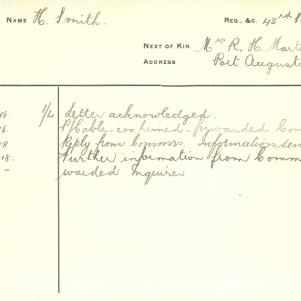 NAME H. Smith. REG., &C. 43rd
NEXT OF KIN Mrs. R. H.
ADDRESS Port Augusta
18. 1/4 Letter acknowledged.
18. Cable confirmed - forwarded
18 Reply from Comms. Information
18. Further information from Comm
- warded inquirer